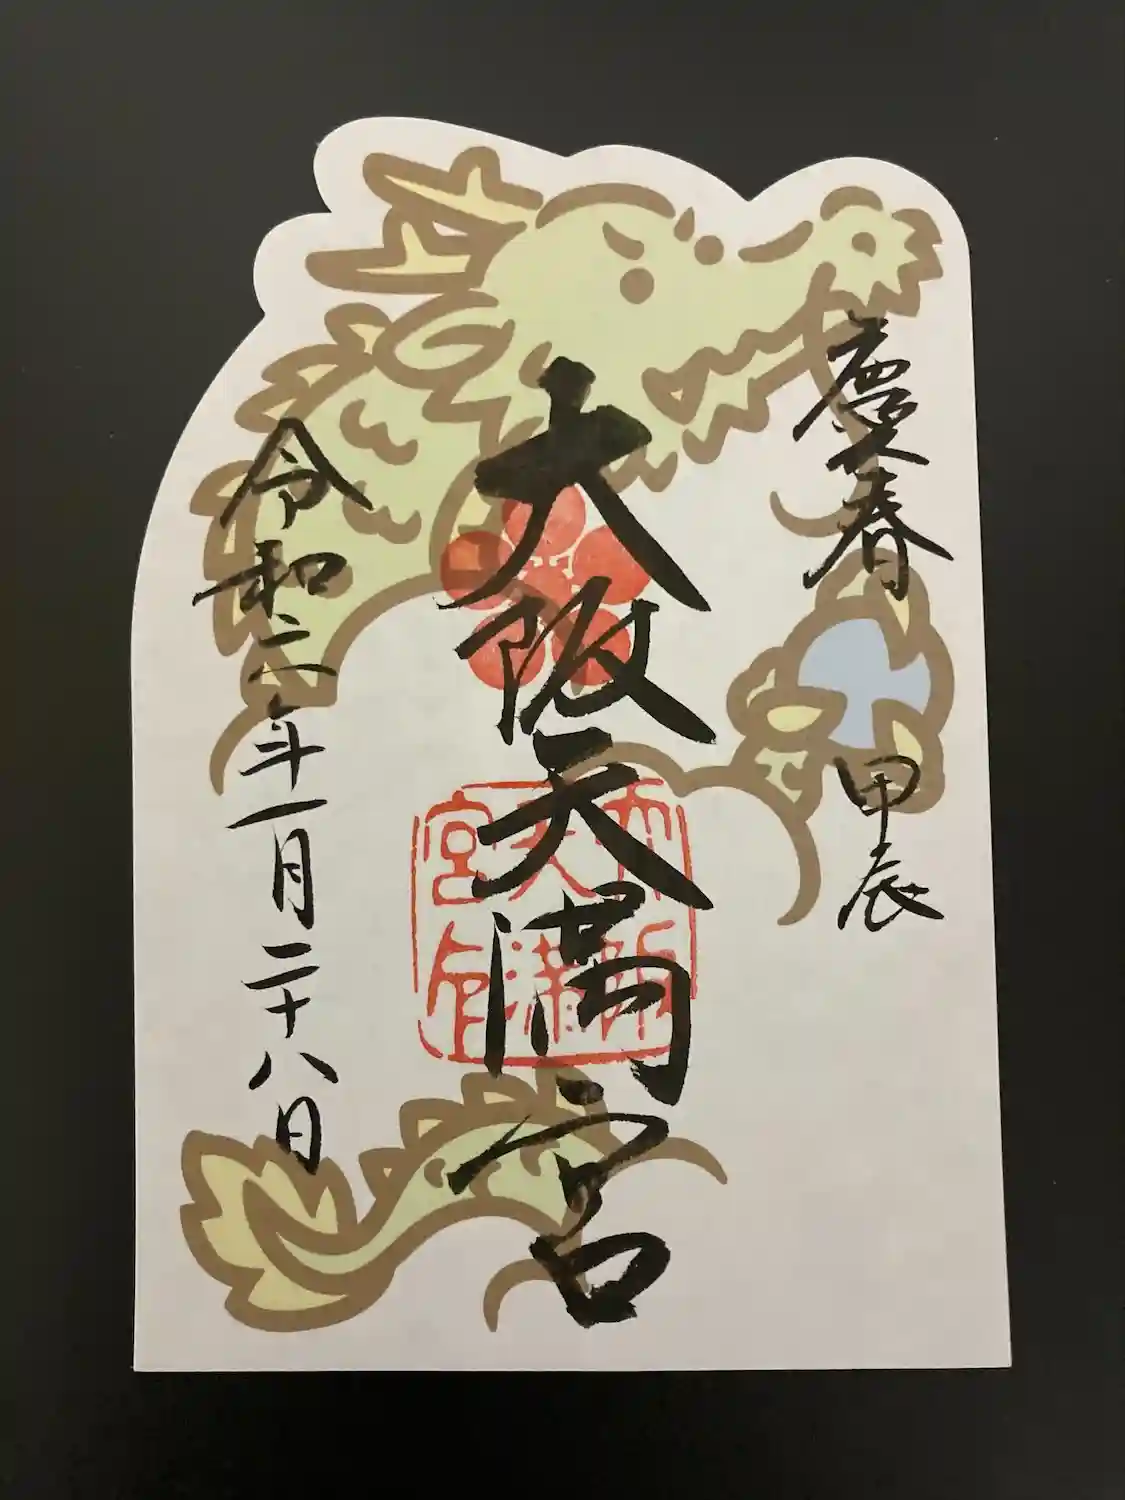 慶春 甲辰
大阪天満宮
令和六年一月二十八日
大阪
天満
宮